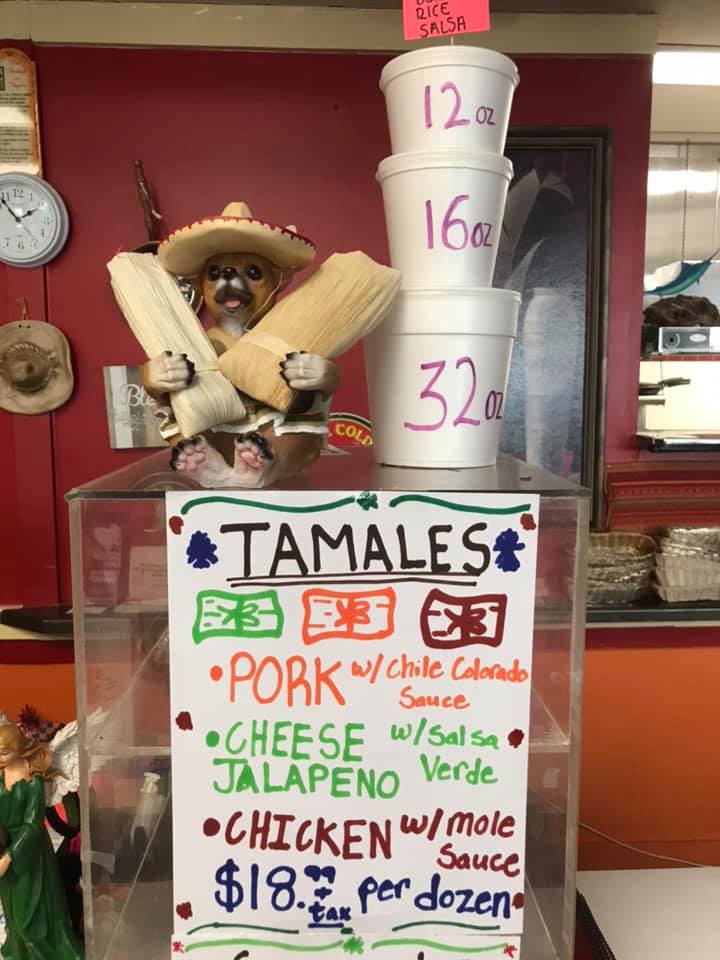 RICE
SALSA
12 oz
16oz
32oz
COLD
TAMALES
•PORK w/ chile Colorado
Sauce
•CHEESE w/ Salsa
JALAPENO Verde
•CHICKEN w/ mole
Sauce
$18.99 + tax per dozen